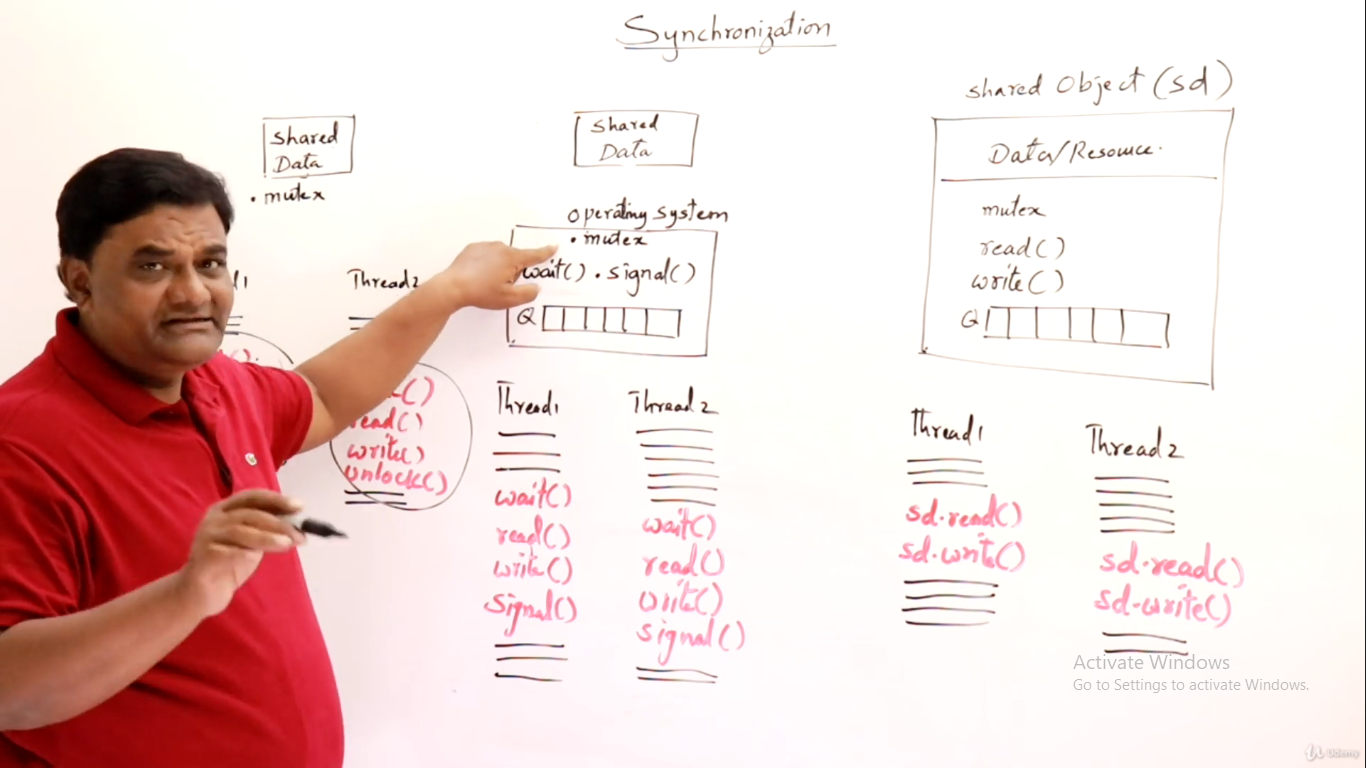 Synchronization
Shared
Data
• mutex
Thread2
read()
write()
unlock()
Shared
Data
Operating System
• mutex
wait() • signal()
Q
Thread1
wait()
read()
write()
Signal()
Thread2
wait()
read()
write()
signal()
Shared Object (sd)
Data/Resource.
mutex
read()
write()
Q
Thread1
sd.read()
sd.write()
Thread2
sd.read()
sd.write()
Activate Windows
Go to Settings to activate Windows.
Udemy